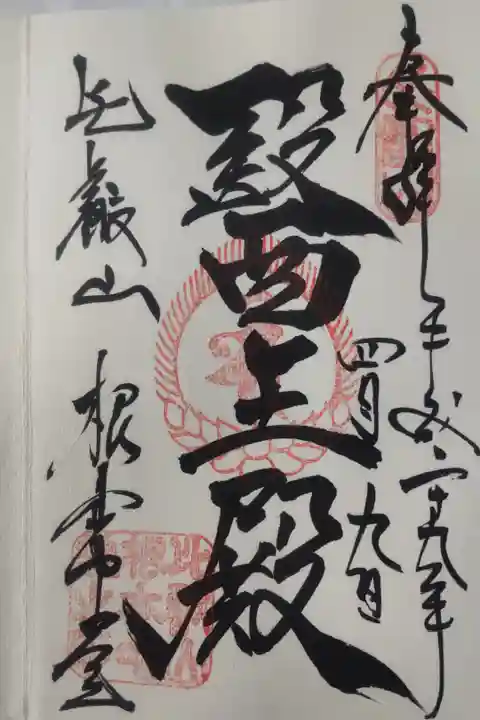 奉拝 平成二十九年
四月九日
醫王殿
比叡山 根本中堂